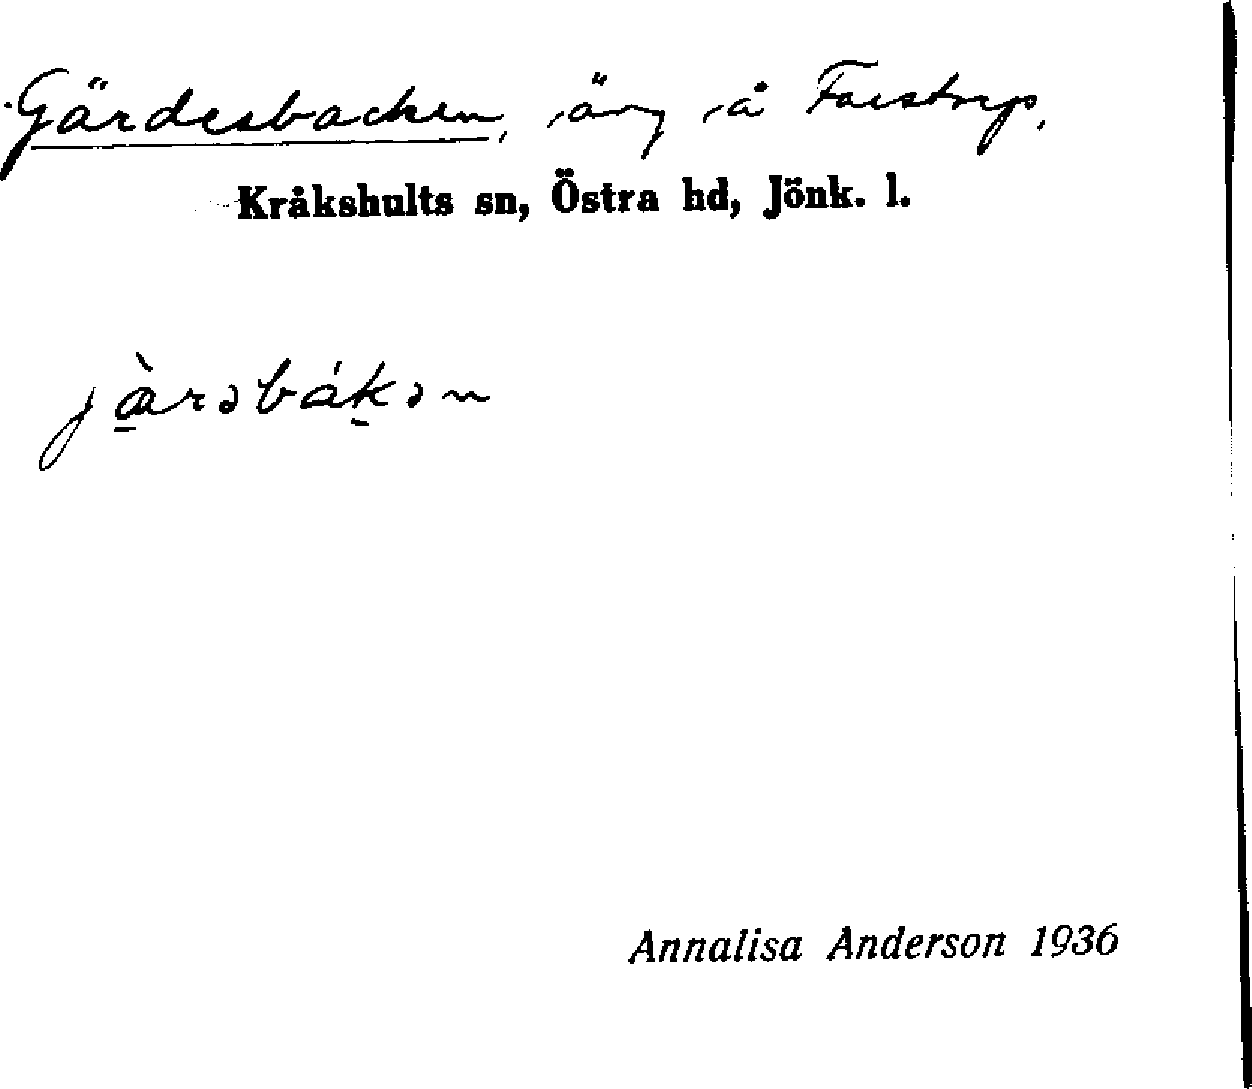 Gärdesbacken, äng å Farstorp,
Kråkshults sn, Östra hd, Jönk. l.
jæ̀rəbákən
Annalisa Anderson 1936